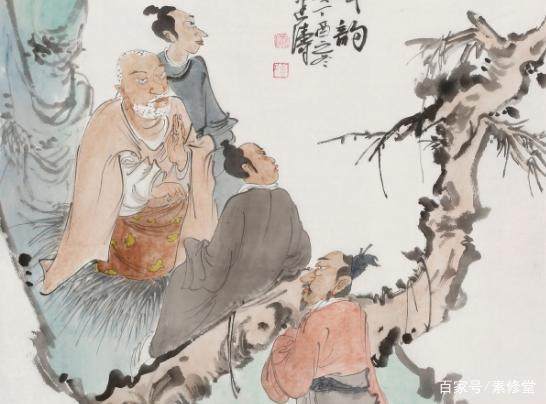 韵
丁酉之冬
涛
百家号/素修堂